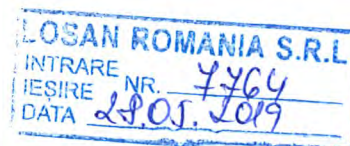 LOSAN ROMANIA S.R.L
INTRARE
IEȘIRE NR. 7764
DATA 28.05.2019